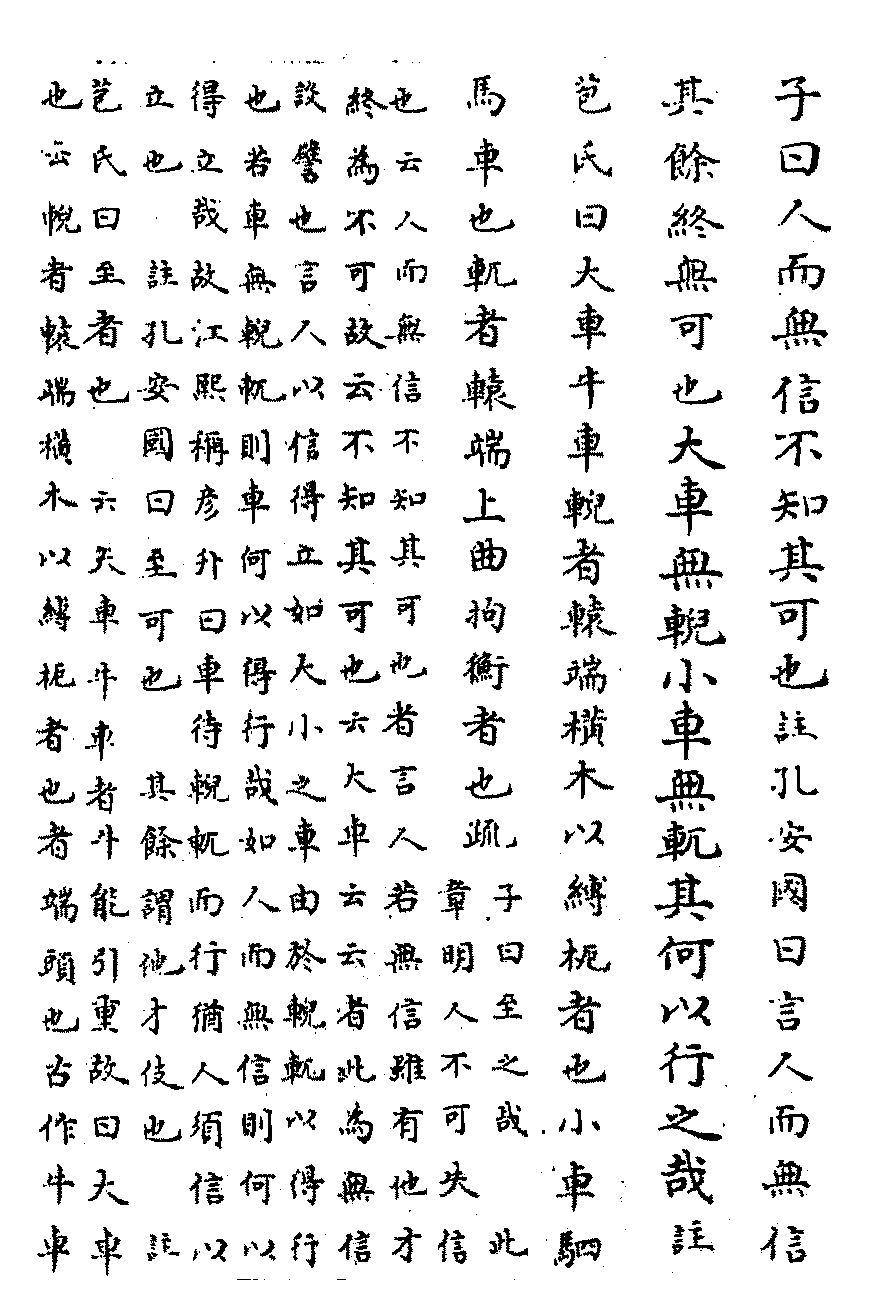 子曰人而無信不知其可也註孔安國曰言人而無信
其餘終無可也大車無輗小車無軏其何以行之哉註
苞氏曰大車牛車輗者轅端橫木以縛枙者也小車駟
馬車也軏者轅端上曲拘衡者也疏
子曰至之哉 此
章明人不可失信
也云人而無信不知其可也者言人若無信雖有他才
終為不可故云不知其可也云大車云云者此為無信
設譬也言人以信得立如大小之車由於輗軏以得行
也若車無輗軏則車何以得行哉如人而無信則何以
得立哉故江熙稱彦升曰車待輗軏而行猶人須信以
立也 註孔安國曰至可也 其餘謂他才伎也 註
苞氏曰至者也 云大車牛車者牛能引重故曰大車
也云輗者轅端橫木以縛枙者也者端頭也古作牛車